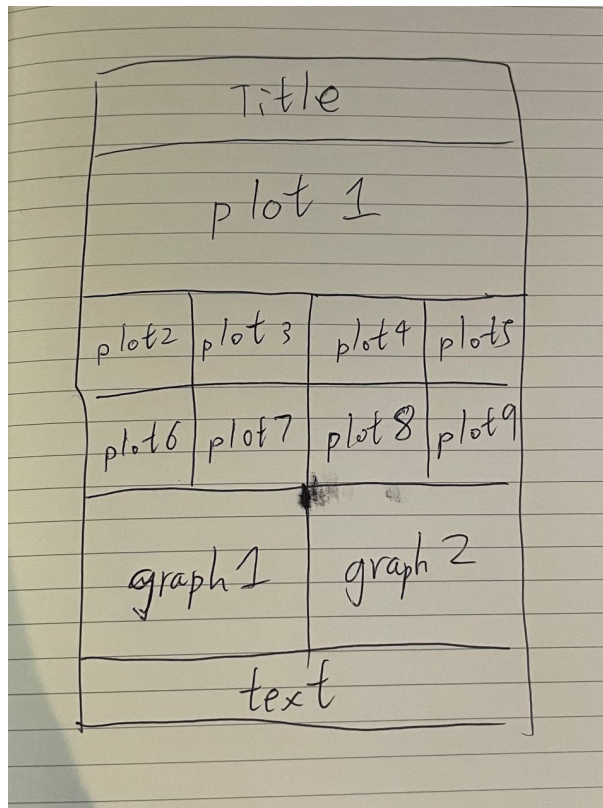 Title
plot 1
plot2 plot 3 plot4 plot5
plot6 plot7 plot 8 plot9
graph 1 graph 2
text